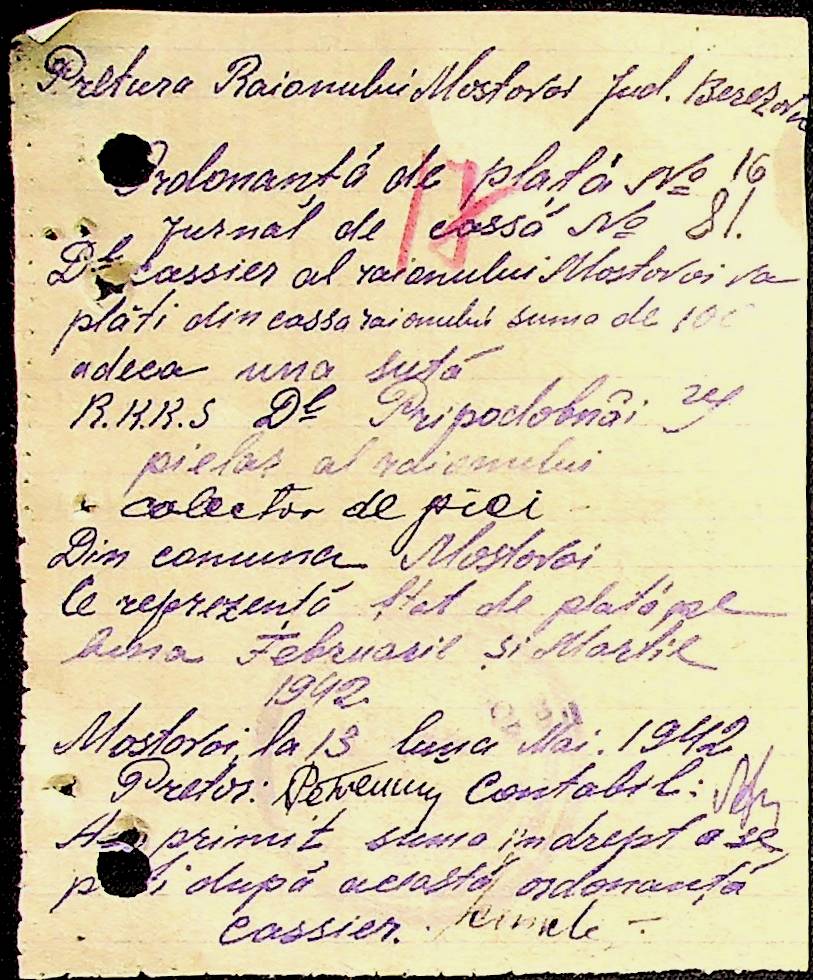 Pretura Raionului Mostovoi Jud. Berezovca
Ordonanță de plată № 16
Jurnal de cassă № 81.
17
Dl cassier al raionului Mostovoi va
plăti din cassa raionului suma de 100
adeca una sută
R.K.K.S Dl Pripodobnâi
pielar al raionului
colector de piei
Din comuna Mostovoi
Ce reprezentă Stat de plată pe
luna Februarie și Martie
1942
Mostovoi, la 13 luna Mai. 1942
Pretor: Contabil:
Am primit suma indrept a se
plăti după această ordonanță
Cassier.